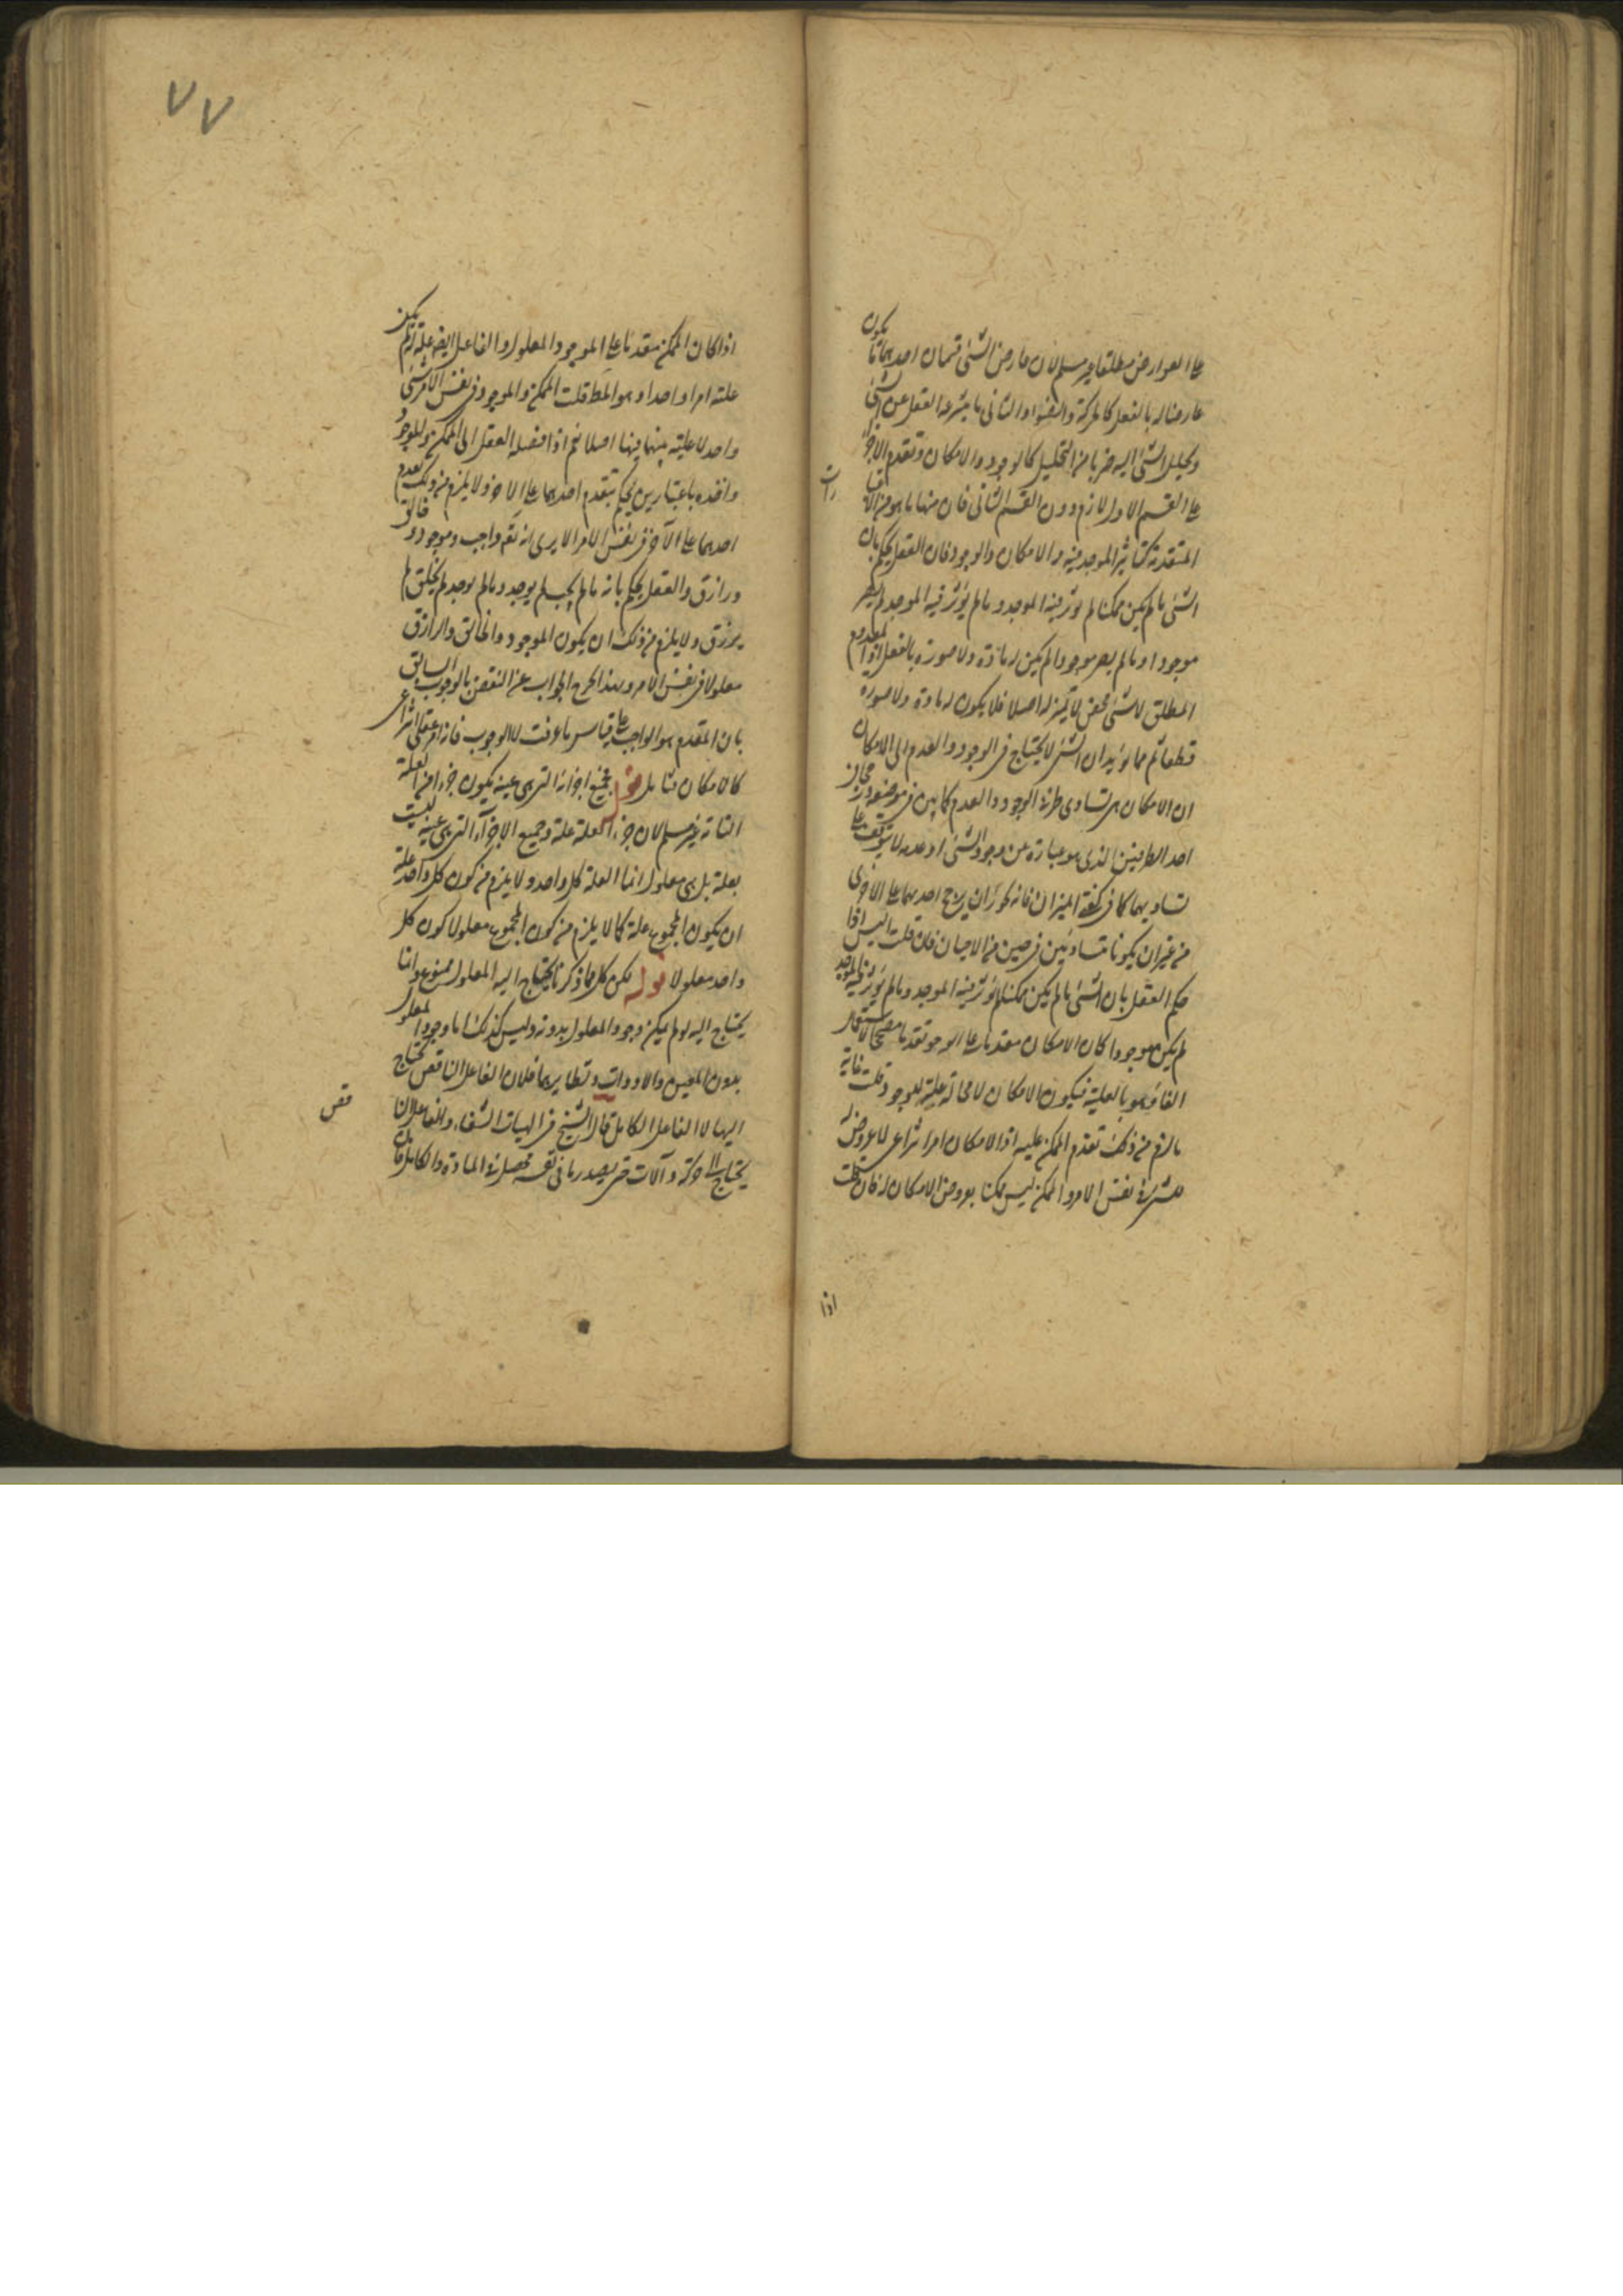 على العوارض مطلقا غير مسلم لان عارض الشئ قسمان احدهما ما يكون
عارضا له بالفعل كالحركة والضوء والثانى ما ينتزعه العقل عن الشئ
وتحليل الشئ اليه ضربا من التحليل كالوجود والامكان وتقدم الاجزاء
على القسم الاول لازم دون القسم الثانى فان منها ما هو من الاعتبارات
المتقدمة كتاثير الموجد فيه والامكان والوجود فان العقل يحكم بان
الشئ ما لم يكن ممكنا لم يوثر فيه الموجد وما لم يؤثر فيه الموجد لم يصر
موجودا وما لم يصر موجودا لم يكن له مادة ولا صورة بالفعل اذ المعدوم
المطلق لا شئ محض لا تميز له اصلا فلا يكون له مادة ولا صورة
قطعا ثم مما يؤيد ان الشئ لا يحتاج فى الوجود والعدم الى الامكان
ان الامكان هو تساوى طرفى الوجود والعدم كما بين فى موضعه ورجحان
احد الطرفين الذى هو عبارة عن وجود الشئ او عدمه لا يتوقف على
تساويهما كما فى كفة الميزان فانه يجوز ان يرجح احديهما على الاخرى
من غير ان يكونا متساويتين فى حين من الاحيان فان قلت اليس اذا
حكم العقل بان الشئ ما لم يكن ممكنا لم يؤثر فيه الموجد وما لم يؤثر فيه الموجد
لم يكن موجودا كان الامكان مقدما على الوجود تقدما مصححا لاستعمال
الفاء وهو بالعلية فيكون الامكان لا محالة علة للوجود قلت غاية
ما لزم من ذلك تقدم الممكن عليه اذ الامكان امر انتزاعى لا عروض له
للشئ فى نفس الامر والممكن ليس ممكنا بعروض الامكان له فان قلت
اذا
٧٧
اذا كان الممكن مقدما على الموجود المعلول والفاعل ايضا علة له لم يكن
علته امرا واحدا وهو المط قلت الممكن والموجود فى نفس الامر شئ
واحد لا علية بينهما فيها اصلا نعم اذا فصله العقل الى الممكن والموجود
واخذه باعتبارين يحكم بتقدم احدهما على الاخر ولا يلزم من ذلك تقدم
احدهما على الآخر فى نفس الامر الا يرى انه تعم واجب وموجود وخالق
ورازق والعقل يحكم بانه ما لم يجب لم يوجد وما لم يوجد لم يخلق ولم
يرزق ولا يلزم من ذلك ان يكون الموجود والخالق والرازق
معلولا فى نفس الامر وبهذا يخرج الجواب عن النقض بالوجوب السابق
بان المقدم هو الواجب على قياس ما عرفت لا الوجوب فانه امر عقلى انتزاعى
كالامكان فتامل قوله فجميع اجزائه التى هى عينه يكون جزءا من العلة
التامة غير مسلم لان جزء العلة علة وجميع الاجزاء التى هى عينه ليست
بعلة بل هى معلول انما العلة كل واحد ولا يلزم من كون كل واحد علة
ان يكون المجموع علة كما لا يلزم من كون المجموع معلولا كون كل
واحد معلولا قوله لكن كل مما ذكرنا يحتاج اليه المعلول ممنوع وانما
يحتاج اليه لو لم يمكن وجود المعلول بدونه وليس كذلك اما وجود المعلول
بدون المعين والادوات ونظايرهما فلان الفاعل الناقص يحتاج
اليها لا الفاعل الكامل قال الشيخ فى الهيات الشفاء والفاعل الناقص
يحتاج الى حركة وآلات حتى يصدر ما فى نفسه محصلا فى المادة والكامل فان